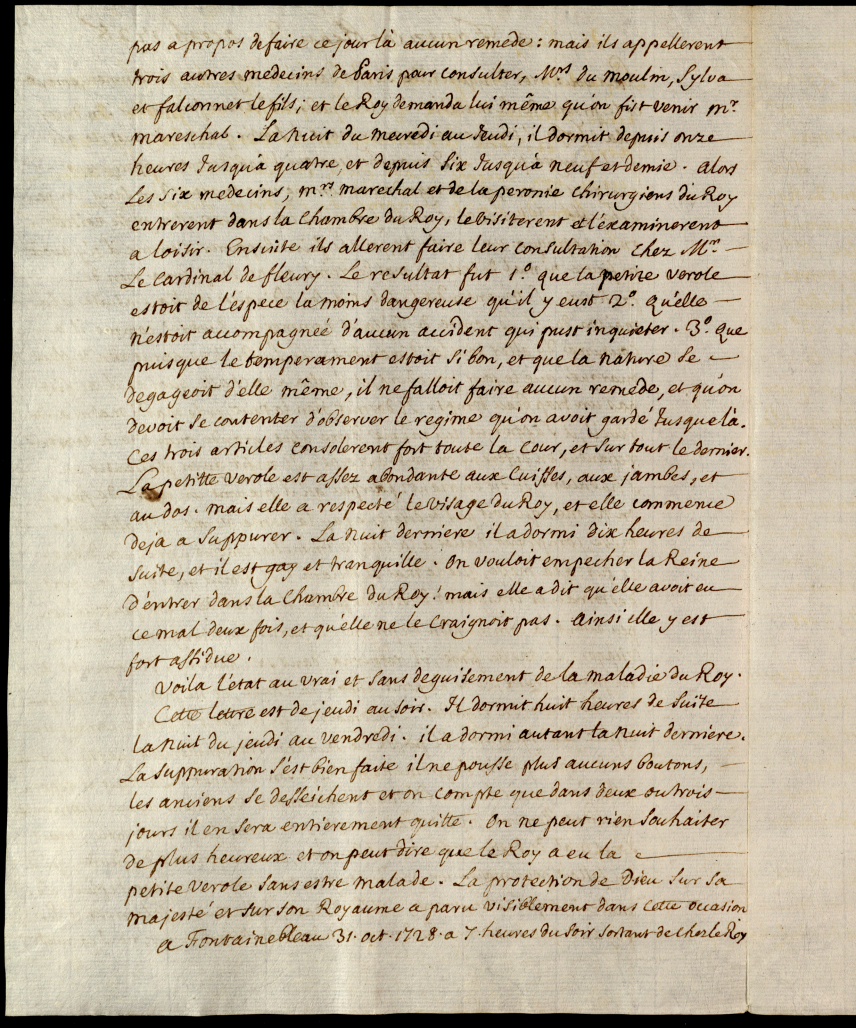 pas a propos de faire ce jour là aucun remede : mais ils appellerent
trois autres medecins de Paris pour consulter, Mrs. du moulin, Sylva
et falconnet le fils; et le Roy demanda lui même qu'on fist venir mr.
mareschal. La nuit du mecredi au Jeudi, il dormit depuis onze
heures Jusqu'a quatre, et depuis six Jusqu'à neuf et demie. Alors
Les six medecins, mrs. marechal et de la peronie Chirurgiens du Roy
entrerent dans la Chambre du Roy, le visiterent et l'éxaminerent
a loisir. Ensuite ils allerent faire leur consultation chez Mr.
Le Cardinal de fleury. Le resultat fut 1.º que la petite verole
estoit de l'éspece la moins dangereuse qu'il y eust 2º. Qu'elle
n'estoit accompagneé d'aucun accident qui pust inquieter. 3.º que
puisque le temperament estoit si bon, et que la nature se
degageoit d'elle même, il ne falloit faire aucun remede, et qu'on
devoit se contenter d'observer le regime qu'on avoit gardé Jusque là.
Ces trois articles consolerent fort toute la Cour, et sur tout le dernier.
La petitte verole est assez abondante aux Cuisses, aux jambes, et
au dos. mais elle a respecté le visage du Roy, et elle commence
deja a suppurer. La nuit derniere il a dormi dix heures de
suite, et il est gay et tranquille. On vouloit empecher la Reine
d'éntrer dans la Chambre du Roy! mais elle a dit qu'élle avoit eu
ce mal deux fois, et qu'élle ne le Craignoit pas. Ainsi elle y est
fort assidue.
Voila l'état au vrai et sans deguisement de la maladie du Roy.
Cette lettre est de jeudi au soir. Il dormit huit heures de suite
la nuit du jeudi au vendredi. il a dormi autant la nuit derniere.
La suppuration s'ést bien faite il ne pousse plus aucuns boutons,
les anciens se desseichent et on compte que dans deux ou trois
jours il en sera entierement quitte. On ne peut rien souhaiter
de plus heureux et on peut dire que le Roy a eu la
petite verole sans estre malade. La protection de Dieu sur sa
majesté et sur son Royaume a paru visiblement dans Cette occasion
a Fontainebleau 31. oct. 1728. a 7. heures du soir sortant de chez le Roy